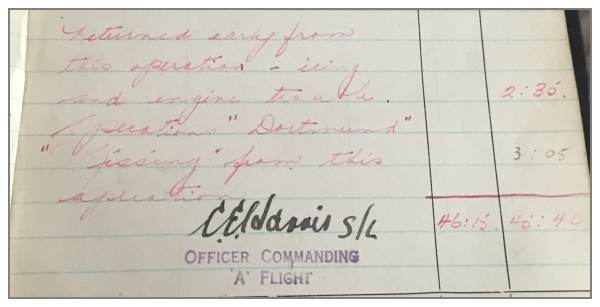 Returned early from
this operation - icing
and engine trouble. 2:35.
Operations "Dortmund"
"Missing" from this 3:05
operation
46:15. 45:40
C.E. Harris S/L
OFFICER COMMANDING
'A' FLIGHT